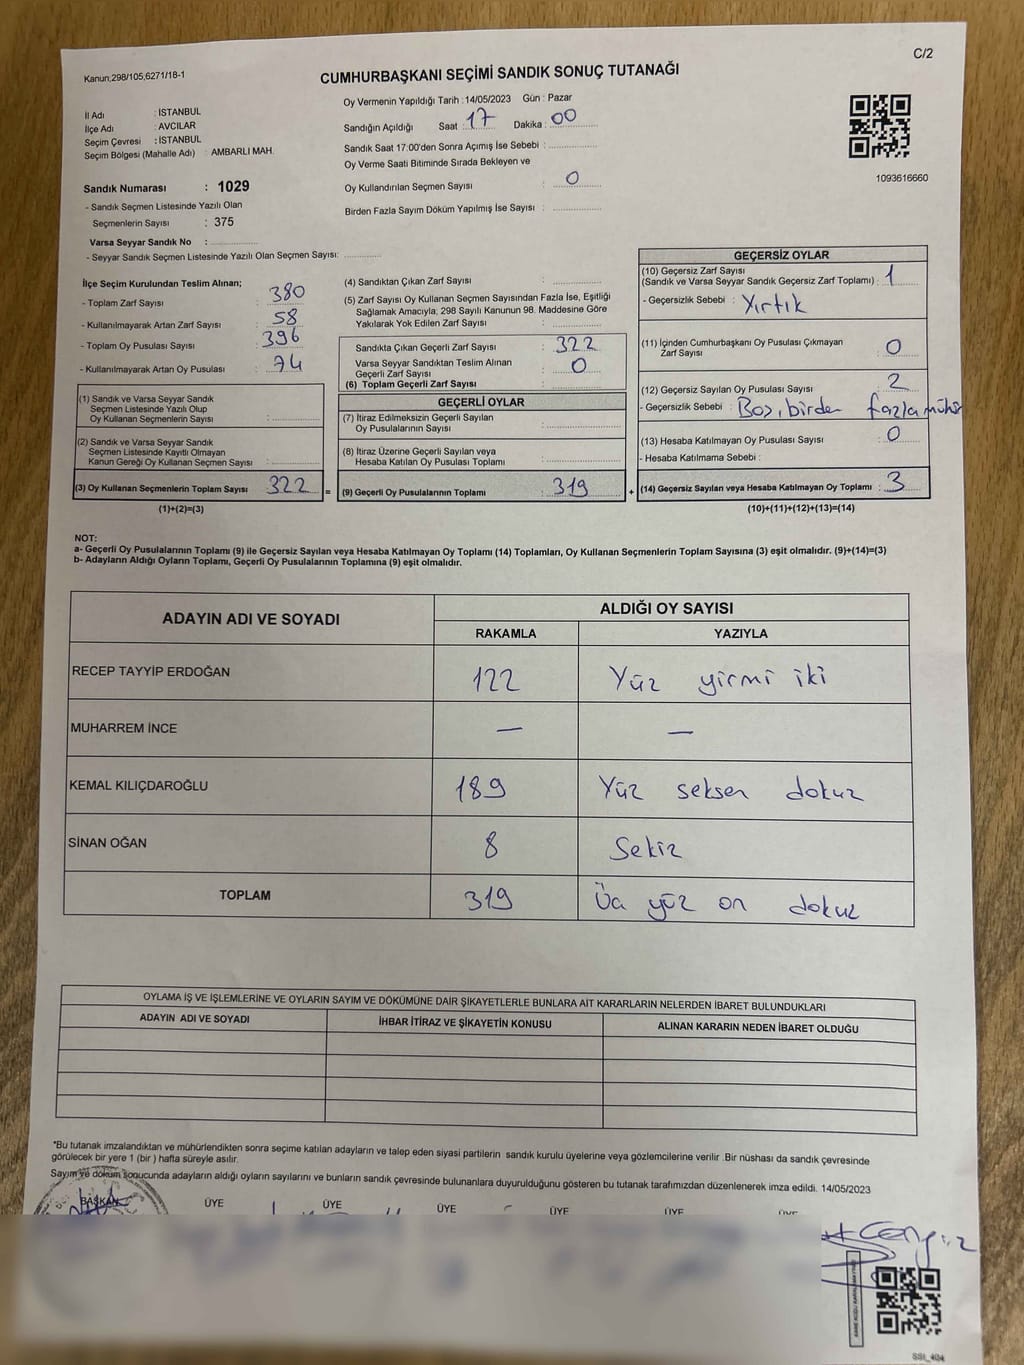 C/2
Kanun;298/105;6271/18-1
CUMHURBAŞKANI SEÇİMİ SANDIK SONUÇ TUTANAĞI
İl Adı : İSTANBUL
İlçe Adı : AVCILAR
Seçim Çevresi : İSTANBUL
Seçim Bölgesi (Mahalle Adı) : AMBARLI MAH.
Sandık Numarası : 1029
- Sandık Seçmen Listesinde Yazılı Olan
Seçmenlerin Sayısı : 375
Varsa Seyyar Sandık No :
- Seyyar Sandık Seçmen Listesinde Yazılı Olan Seçmen Sayısı:
Oy Vermenin Yapıldığı Tarih : 14/05/2023 Gün : Pazar
Sandığın Açıldığı Saat : 17 Dakika : 00
Sandık Saat 17:00'den Sonra Açımış İse Sebebi :
Oy Verme Saati Bitiminde Sırada Bekleyen ve
Oy Kullandırılan Seçmen Sayısı : 0
Birden Fazla Sayım Döküm Yapılmış İse Sayısı :
1093616660
İlçe Seçim Kurulundan Teslim Alınan;
- Toplam Zarf Sayısı : 380
- Kullanılmayarak Artan Zarf Sayısı : 58
- Toplam Oy Pusulası Sayısı : 396
- Kullanılmayarak Artan Oy Pusulası : 74
(1) Sandık ve Varsa Seyyar Sandık
Seçmen Listesinde Yazılı Olup
Oy Kullanan Seçmenlerin Sayısı :
(2) Sandık ve Varsa Seyyar Sandık
Seçmen Listesinde Kayıtlı Olmayan
Kanun Gereği Oy Kullanan Seçmen Sayısı :
(3) Oy Kullanan Seçmenlerin Toplam Sayısı : 322 =
(1)+(2)=(3)
(4) Sandıktan Çıkan Zarf Sayısı :
(5) Zarf Sayısı Oy Kullanan Seçmen Sayısından Fazla İse, Eşitliği
Sağlamak Amacıyla; 298 Sayılı Kanunun 98. Maddesine Göre
Yakılarak Yok Edilen Zarf Sayısı :
Sandıkta Çıkan Geçerli Zarf Sayısı : 322
Varsa Seyyar Sandıktan Teslim Alınan
Geçerli Zarf Sayısı : 0
(6) Toplam Geçerli Zarf Sayısı :
GEÇERLİ OYLAR
(7) İtiraz Edilmeksizin Geçerli Sayılan
Oy Pusulalarının Sayısı :
(8) İtiraz Üzerine Geçerli Sayılan veya
Hesaba Katılan Oy Pusulası Toplamı :
(9) Geçerli Oy Pusulalarının Toplamı : 319 +
GEÇERSİZ OYLAR
(10) Geçersiz Zarf Sayısı
(Sandık ve Varsa Seyyar Sandık Geçersiz Zarf Toplamı) : 1
- Geçersizlik Sebebi : Yırtık
(11) İçinden Cumhurbaşkanı Oy Pusulası Çıkmayan
Zarf Sayısı : 0
(12) Geçersiz Sayılan Oy Pusulası Sayısı : 2
- Geçersizlik Sebebi : Boş, birden fazla mühür
(13) Hesaba Katılmayan Oy Pusulası Sayısı : 0
- Hesaba Katılmama Sebebi :
(14) Geçersiz Sayılan veya Hesaba Katılmayan Oy Toplamı : 3
(10)+(11)+(12)+(13)=(14)
NOT:
a- Geçerli Oy Pusulalarının Toplamı (9) ile Geçersiz Sayılan veya Hesaba Katılmayan Oy Toplamı (14) Toplamları, Oy Kullanan Seçmenlerin Toplam Sayısına (3) eşit olmalıdır. (9)+(14)=(3)
b- Adayların Aldığı Oyların Toplamı, Geçerli Oy Pusulalarının Toplamına (9) eşit olmalıdır.
ADAYIN ADI VE SOYADI
ALDIĞI OY SAYISI
RAKAMLA YAZIYLA
RECEP TAYYİP ERDOĞAN 122 Yüz yirmi iki
MUHARREM İNCE — —
KEMAL KILIÇDAROĞLU 189 Yüz seksen dokuz
SİNAN OĞAN 8 Sekiz
TOPLAM 319 Üç yüz on dokuz
OYLAMA İŞ VE İŞLEMLERİNE VE OYLARIN SAYIM VE DÖKÜMÜNE DAİR ŞİKAYETLERLE BUNLARA AİT KARARLARIN NELERDEN İBARET BULUNDUKLARI
ADAYIN ADI VE SOYADI İHBAR İTİRAZ VE ŞİKAYETİN KONUSU ALINAN KARARIN NEDEN İBARET OLDUĞU
*Bu tutanak imzalandıktan ve mühürlendikten sonra seçime katılan adayların ve talep eden siyasi partilerin sandık kurulu üyelerine veya gözlemcilerine verilir .Bir nüshası da sandık çevresinde
görülecek bir yere 1 (bir ) hafta süreyle asılır.
Sayım ve döküm sonucunda adayların aldığı oyların sayılarını ve bunların sandık çevresinde bulunanlara duyurulduğunu gösteren bu tutanak tarafımızdan düzenlenerek imza edildi. 14/05/2023
BAŞKAN ÜYE ÜYE ÜYE ÜYE ÜYE ÜYE
SSI_404